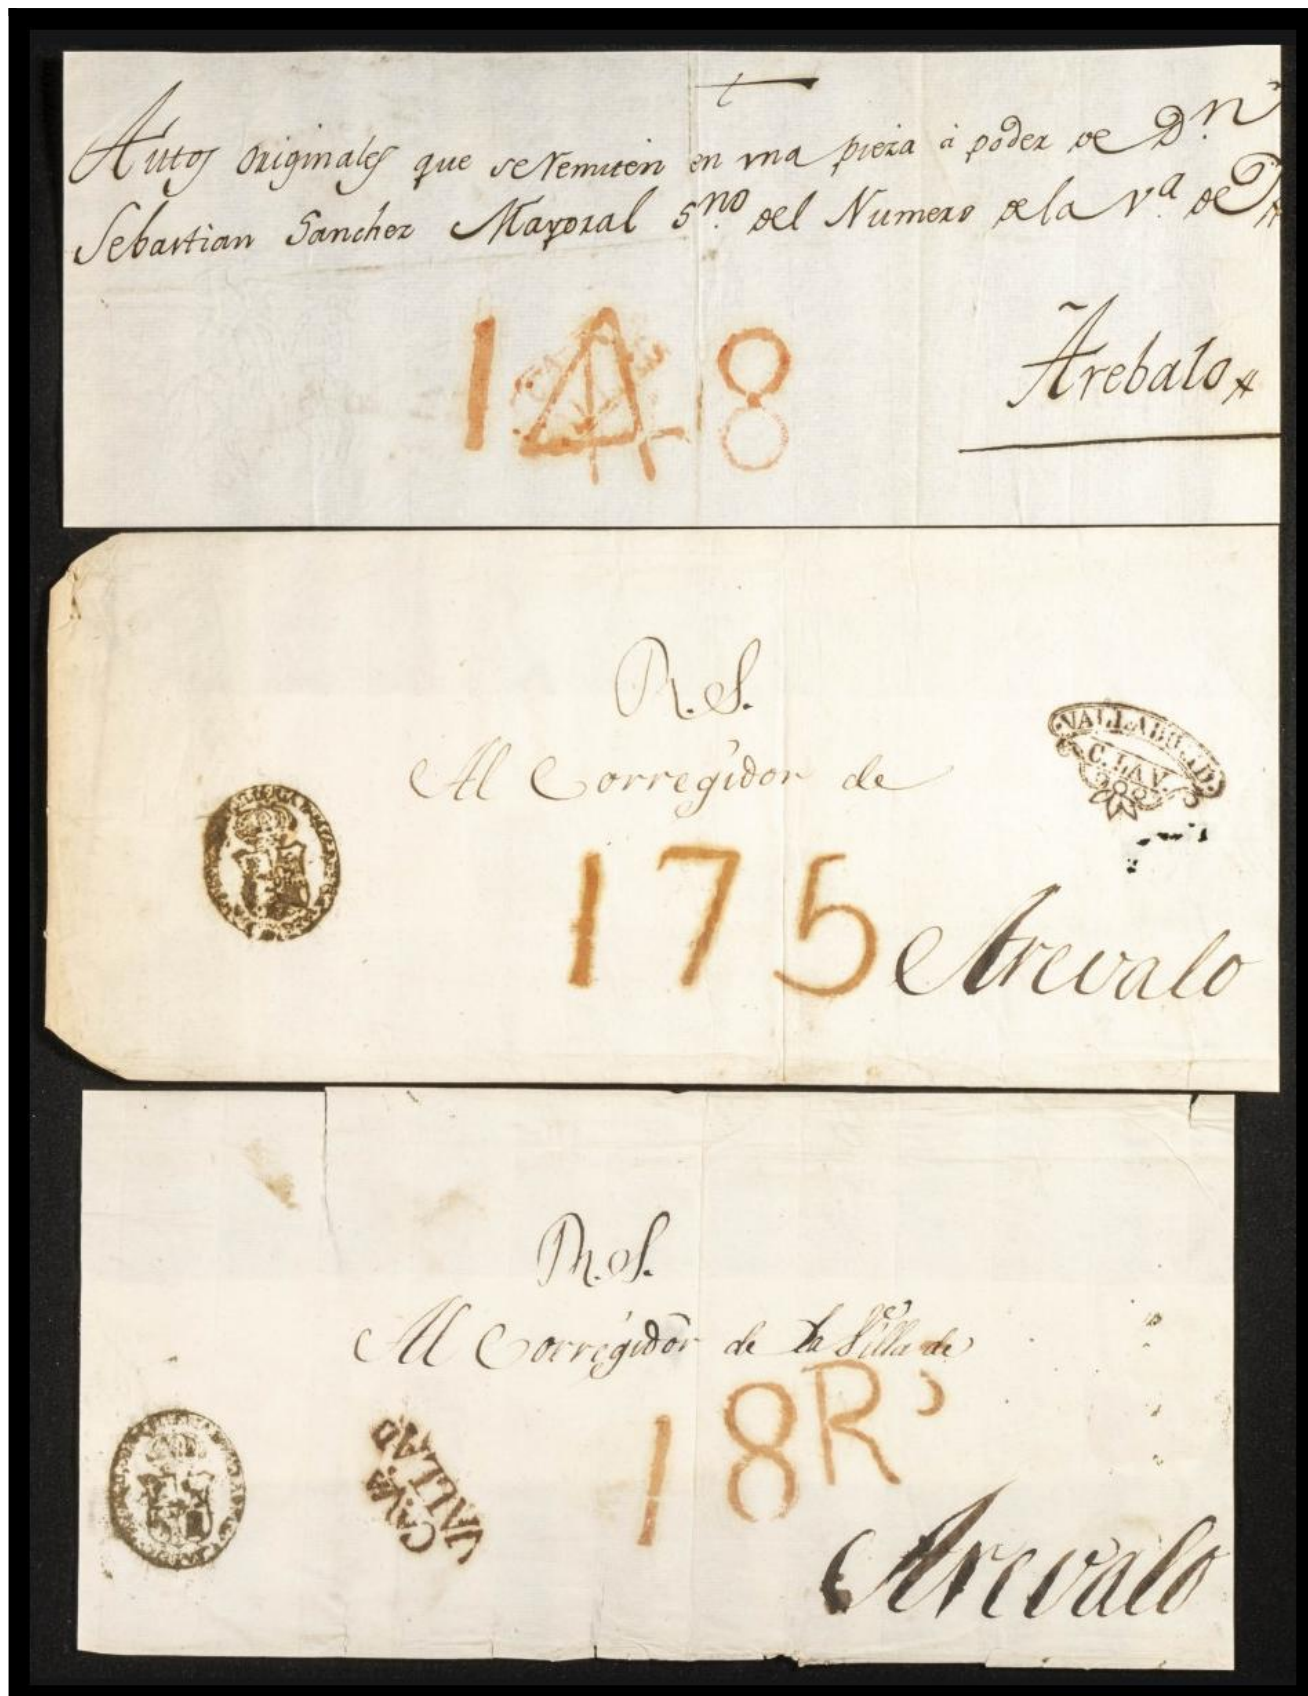 Autos originales que se remiten en una pieza à poder de D.n
Sebastian Sanchez Mayoral S.no del Numero de la V.a de
Arebalo
148
R.S.
Al Corregidor de
VALLADOLID.
175
Arevalo
R.S.
Al Corregidor de la Villa de
18 Rs
VALLAD
Arevalo